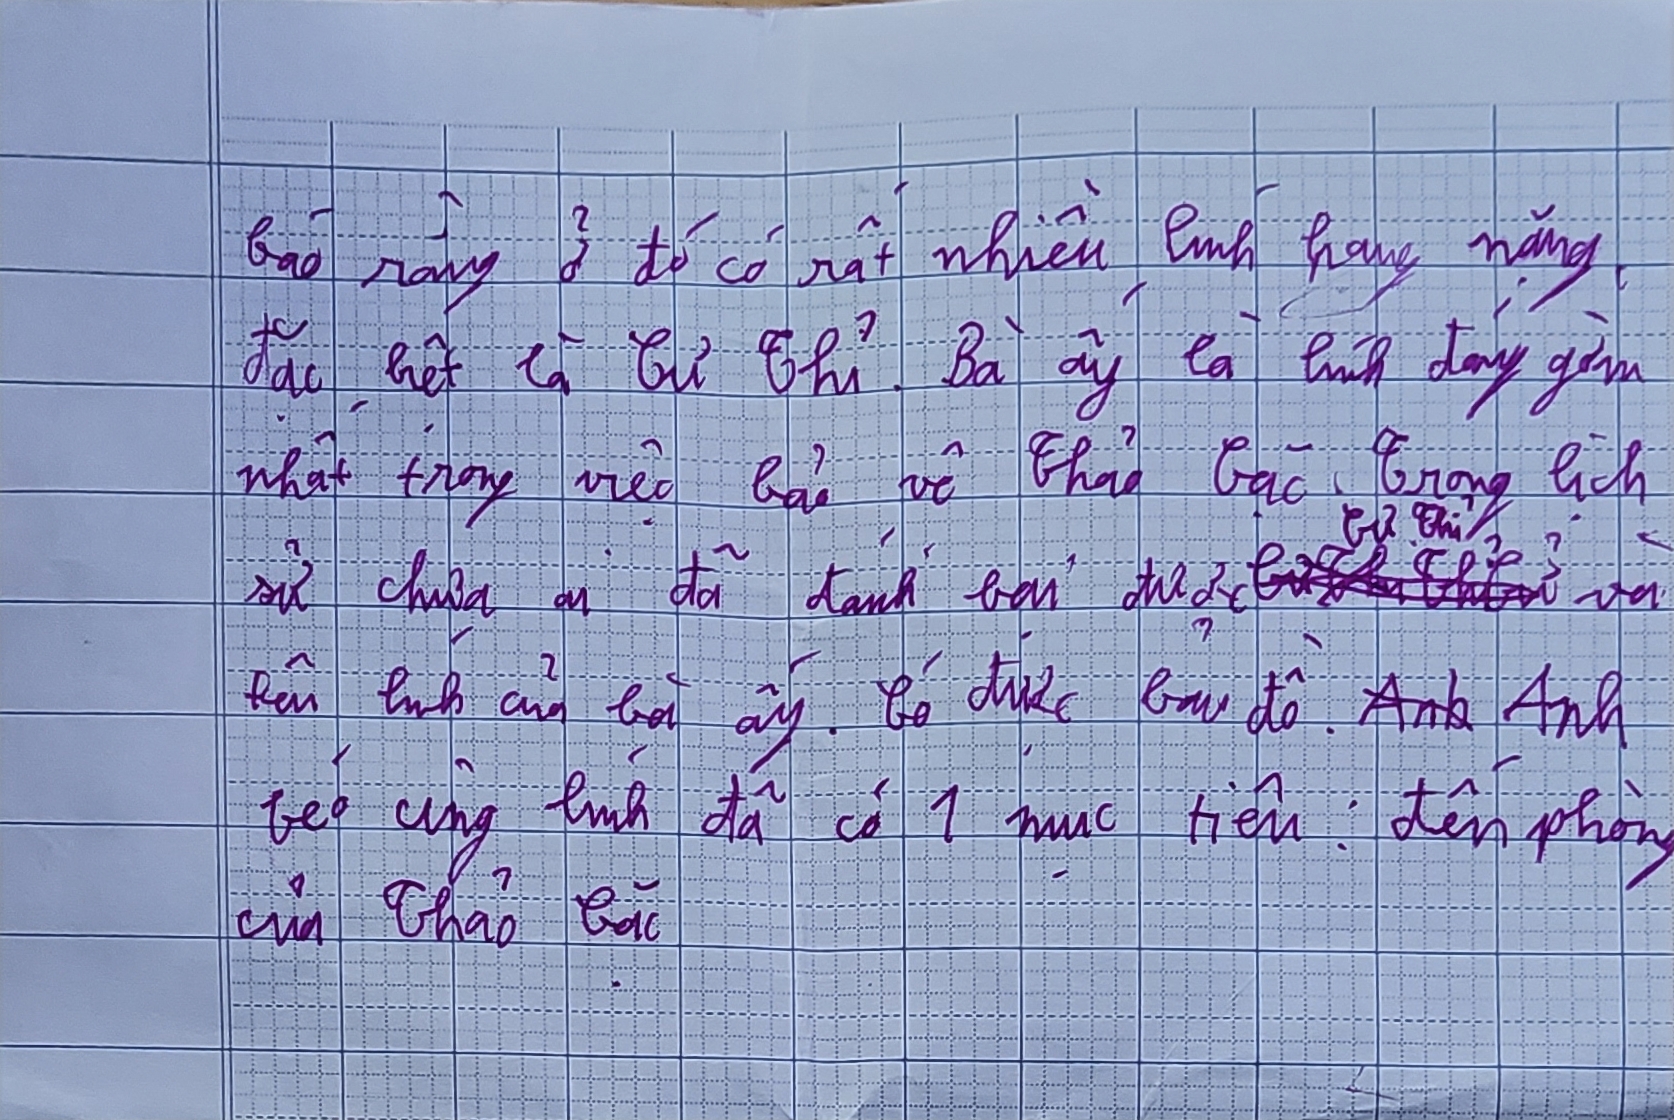 báo rằng ở đó có rất nhiều lính hạng nặng,
đặc biệt là Cư Thỉ. Bà ấy là lính đáng gờm
nhất trong việc bảo vệ Thảo Cặc. Trong lịch
sử chưa ai đã đánh bại được Cư Thỉ và
tên lính của bà ấy. Có được bản đồ. Anh Anh
béo cùng lính đã có 1 mục tiêu: đến phòng
của Thảo Cặc